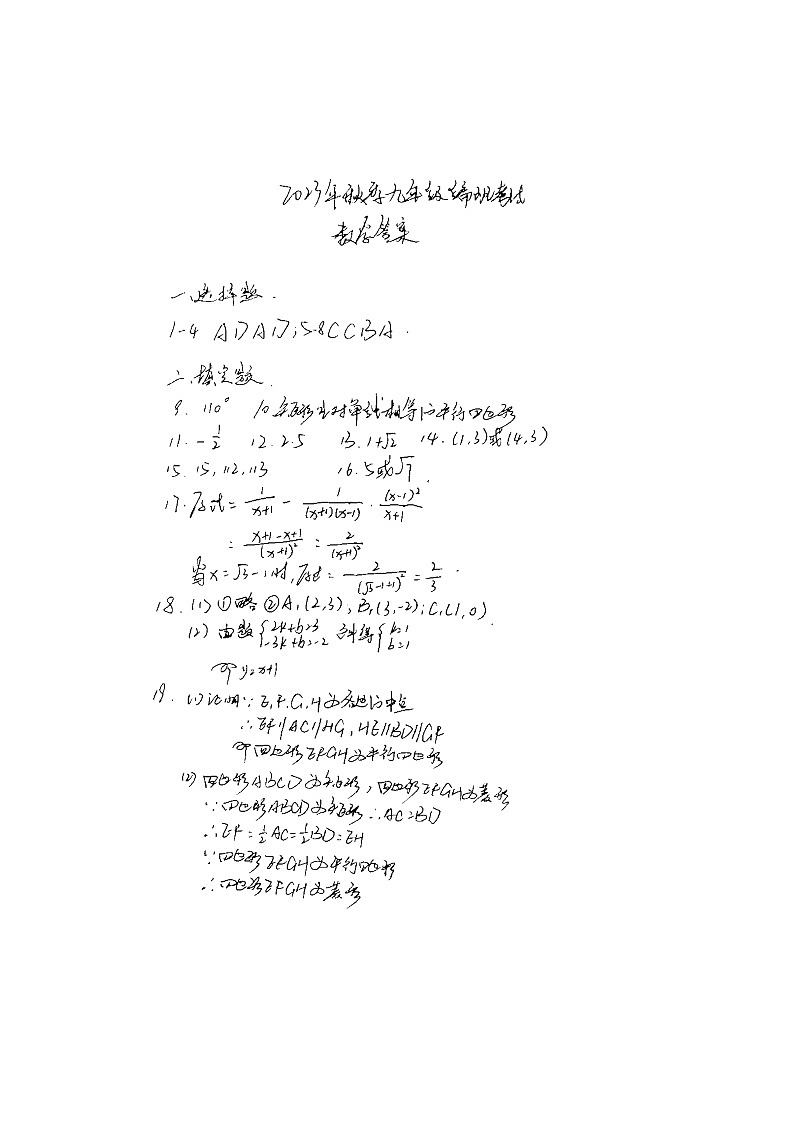 2023年秋季九年级编班考试
数学答案
一、选择题.
1-4 A D A D; 5-8 C C B A.
二、填空题.
9. 110° 10. 矩形是对角线相等的平行四边形
11. -1/2 12. 2.5 13. 1+√2 14. (1,3)或(4,3)
15. 15, 112, 113 16. 5或√7.
17. 原式= 1/(x+1) - 1/((x+1)(x-1)) · (x-1)²/(x+1)
= (x+1-x+1)/(x+1)² = 2/(x+1)²
当x=√3-1时, 原式= 2/(√3-1+1)² = 2/3.
18. (1) ①略 ②A₁(2,3), B₁(3,-2); C₁(1,0)
(2) 由题 {2k+b=3 -3k+b=-2 解得 {k=1 b=1
即 y=x+1
19. (1)证明∵E,F,G,H为各边的中点
∴EF∥AC∥HG, HE∥BD∥GF
即四边形EFGH为平行四边形
(2) 四边形ABCD为矩形, 四边形EFGH为菱形
∵四边形ABCD为矩形 ∴AC=BD
∴EF=½AC=½BD=EH
∵四边形EFGH为平行四边形
∴四边形EFGH为菱形